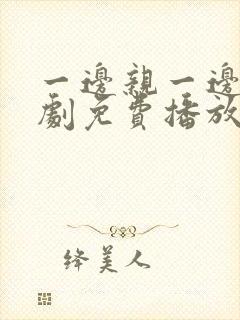 一邊親一邊
劇免費播放
绛美人